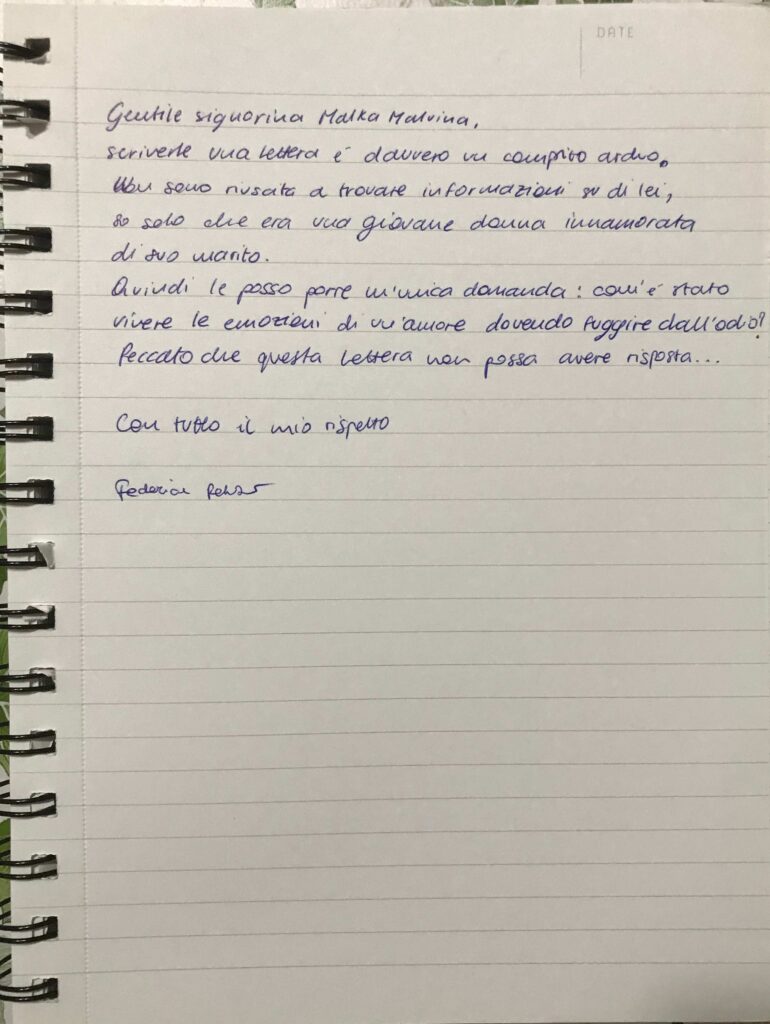 DATE
Gentile signorina Malka Malvina,
scriverle una lettera è davvero un compito arduo.
Non sono riuscita a trovare informazioni su di lei,
so solo che era una giovane donna innamorata
di suo marito.
Quindi le posso porre un'unica domanda: com'è stato
vivere le emozioni di un'amore dovendo fuggire dall'odio?
Peccato che questa lettera non possa avere risposta...
Con tutto il mio rispetto
Federica